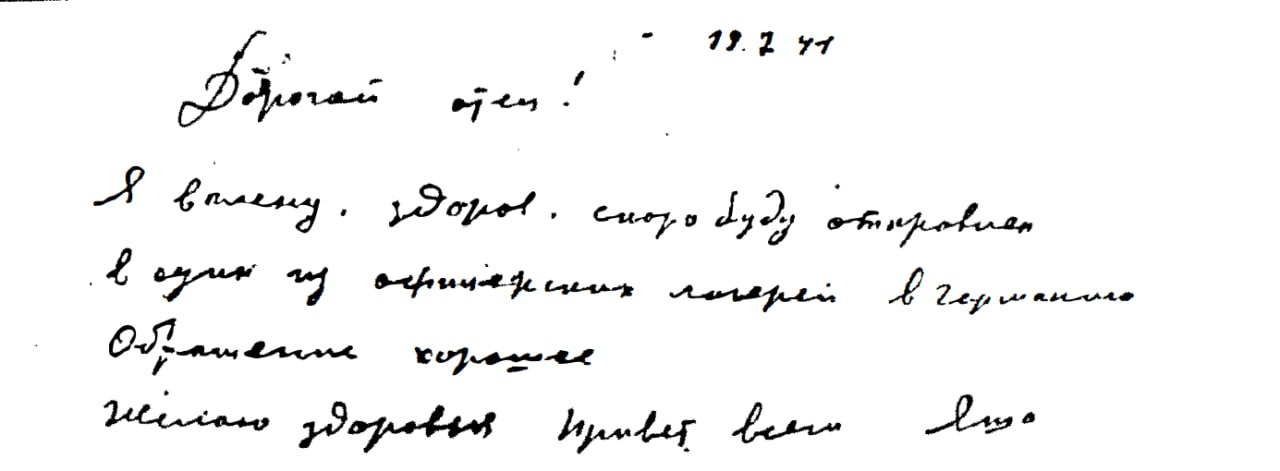 19.7 41
Дорогой отец!
Я в плену. здоров. скоро буду отправлен
в один из офицерских лагерей в Германию
Обращение хорошее
желаю здоровья Привет всем Яша